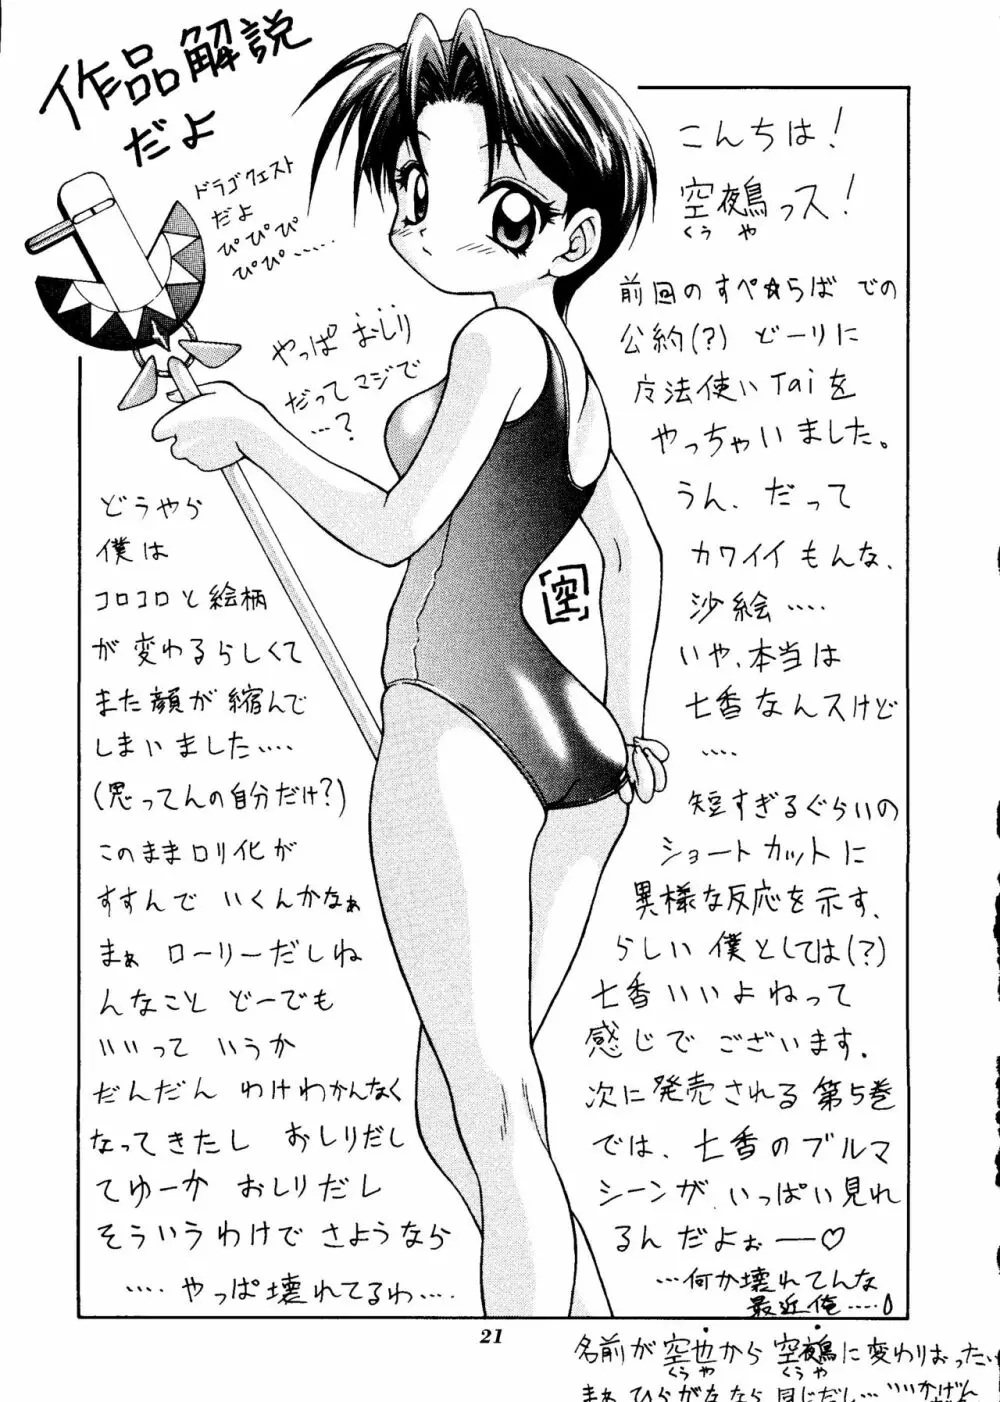 作品解説
だよ
ドラゴクエスト
だよ
ぴぴぴ
ぴぴ・・・・・
やっぱ おしり
だってマジで
・・・?
こんちは!
空鵺っス!
くうや
前回のすぺ☆らばでの
公約(?) どーりに
魔法使いTaiを
やっちゃいました。
うん、だって
カワイイもんな、
沙絵・・・・
いや、本当は
七香なんスけど
・・・・
短すぎるぐらいの
ショートカットに
異様な反応を示す、
らしい僕としては(?)
七香いいよねって
感じでございます.
次に発売される第5巻
では、七香のブルマ
シーンが、いっぱい見れ
るんだよぉー♡
・・・何か壊れてんな
最近俺・・・・
どうやら
僕は
コロコロと絵柄
が変わるらしくて
また顔が縮んで
しまいました・・・・
(思ってんの自分だけ?)
このままロリ化が
すすんでいくんかなぁ
まぁ ローリーだしね
んなこと どーでも
いいって いうか
だんだん わけわかんなく
なってきたし おしりだし
てゆーか おしりだし
そういうわけで さようなら
・・・・やっぱ壊れてるわ・・・・
空
21
名前が空也から空鵺に変わりおった
くうや くうや
まぁひらがななら同じだし・・・いいかげん